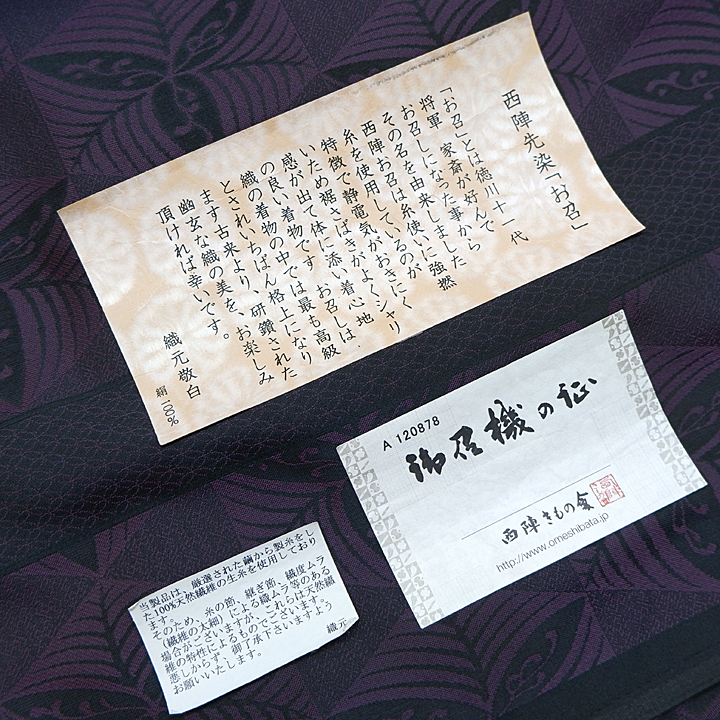 西陣先染「お召」
「お召」とは徳川十一代
将軍 家斎が好んで
お召しになった事から
その名を由来しました
西陣お召は糸使いに強撚
糸を使用しているのが
特徴で静電気がおきにく
いため裾さばきがよくシャリ
感が出て体に添い着心地
の良い着物です お召しは
織の着物の中では最も高級
とされいちばん格上になり
ます古来より、研鑽された
幽玄な織の美を、お楽しみ
頂ければ幸いです。
織元敬白
絹一〇〇％
A 120878
御召機の証
西陣きもの會
http://www.omeshibata.jp
当製品は、厳選された繭から製糸をし
た100%天然繊維の生糸を使用しており
ます。
そのため、糸の節、継ぎ節、繊度ムラ
(繊維の太細)による織ムラ等のある
場合がございますが、これらは天然繊
維の特性によるものでございます。
悪しからず、御了承下さいますよう
お願いいたします。
織元